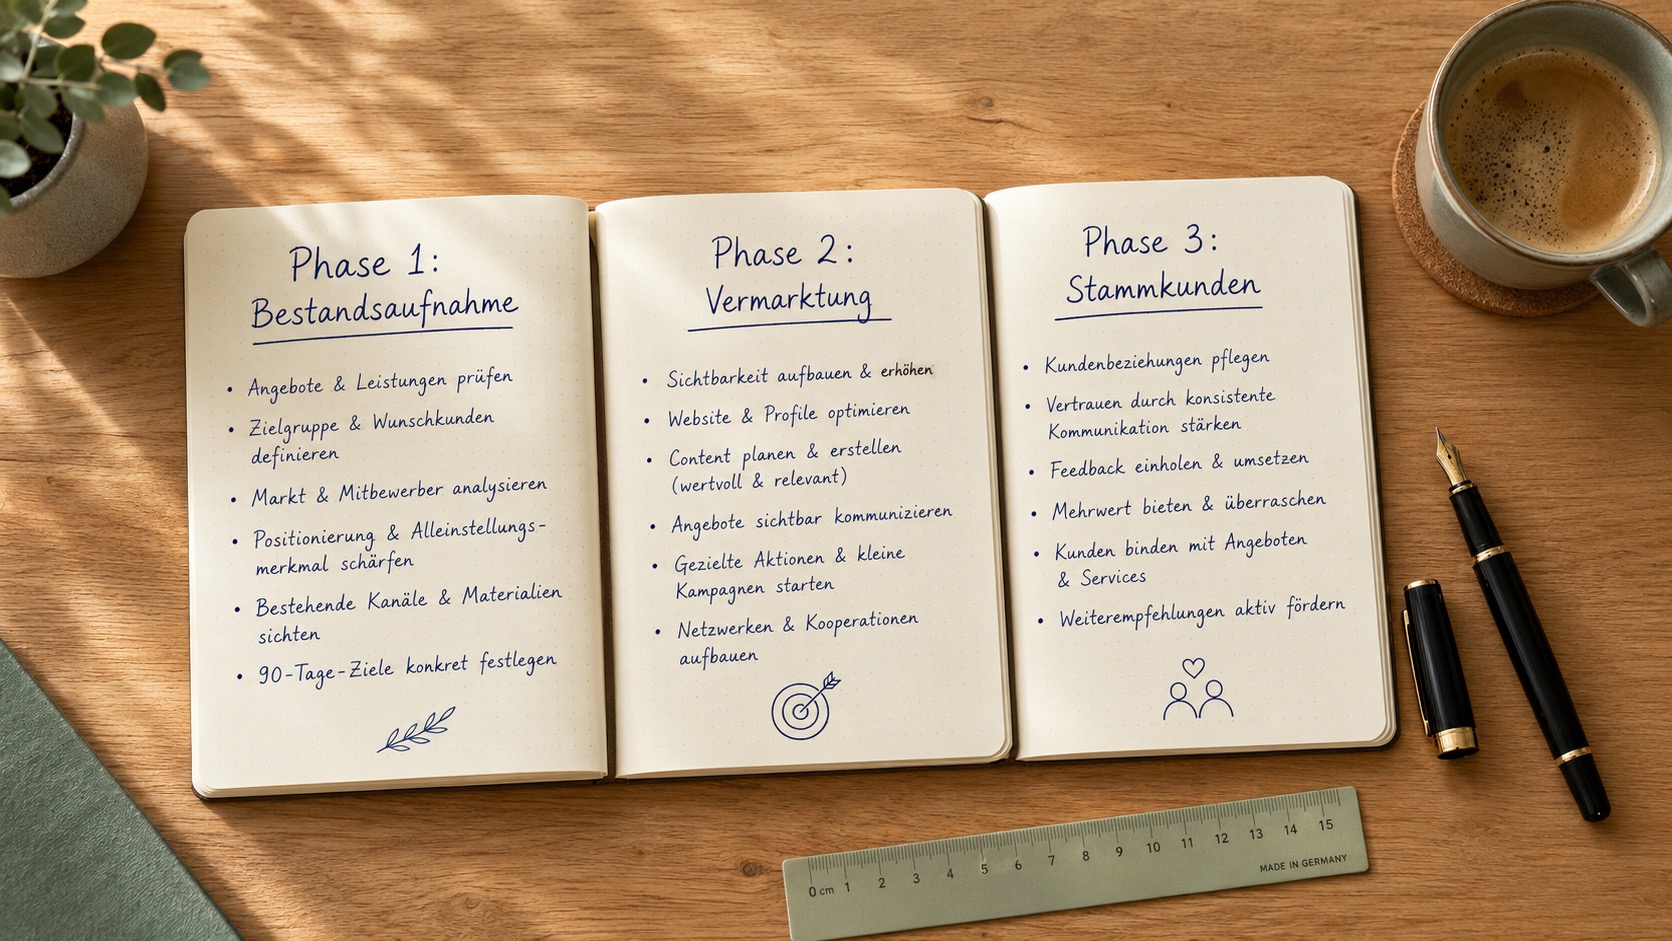 Phase 1:
Bestandsaufnahme
• Angebote & Leistungen prüfen
• Zielgruppe & Wunschkunden
definieren
• Markt & Mitbewerber analysieren
• Positionierung & Alleinstellungs-
merkmal schärfen
• Bestehende Kanäle & Materialien
sichten
• 90-Tage-Ziele konkret festlegen
Phase 2:
Vermarktung
• Sichtbarkeit aufbauen & erhöhen
• Website & Profile optimieren
• Content planen & erstellen
(wertvoll & relevant)
• Angebote sichtbar kommunizieren
• Gezielte Aktionen & kleine
Kampagnen starten
• Netzwerken & Kooperationen
aufbauen
Phase 3:
Stammkunden
• Kundenbeziehungen pflegen
• Vertrauen durch konsistente
Kommunikation stärken
• Feedback einholen & umsetzen
• Mehrwert bieten & überraschen
• Kunden binden mit Angeboten
& Services
• Weiterempfehlungen aktiv fördern
0 cm 1 2 3 4 5 6 7 8 9 10 11 12 13 14 15
MADE IN GERMANY